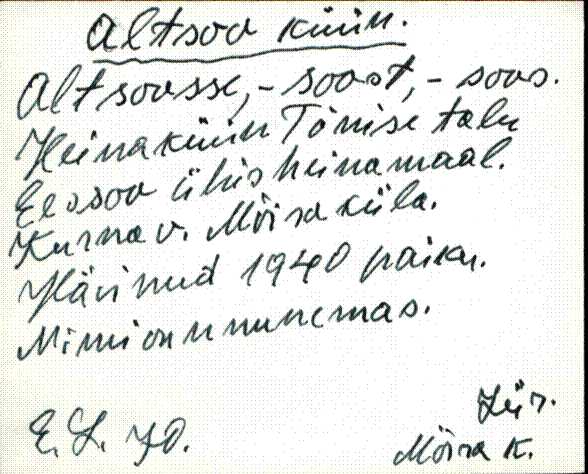 Altsoo küün.
Altsoosse, - soost, - soos.
Heinaküün Tõnise talu
Eessoo ühisheinamaal.
Kurna v. Mõisaküla.
Hävinud 1940 paiku.
Nimi on ununemas.
Jür.
E. L. 70. Mõisa k.